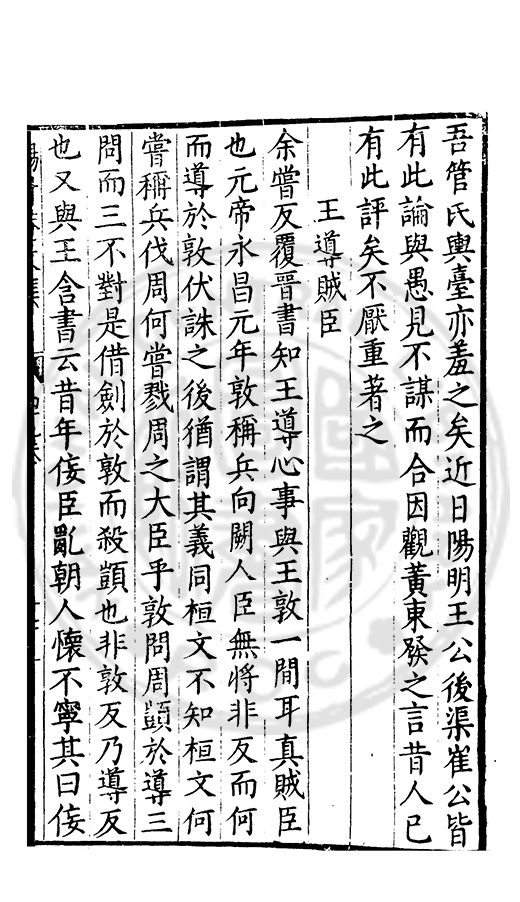 吾管氏輿臺亦羞之矣近日陽明王公後渠崔公皆
有此論與愚見不謀而合因觀黃東發之言昔人已
有此評矣不厭重著之
王導賊臣
余嘗反覆晉書知王導心事與王敦一間耳真賊臣
也元帝永昌元年敦稱兵向闕人臣無將非反而何
而導於敦伏誅之後猶謂其義同桓文不知桓文何
嘗稱兵伐周何嘗戮周之大臣乎敦問周顗於導三
問而三不對是借劍於敦而殺顗也非敦反乃導反
也又與王含書云昔年佞臣亂朝人懷不寧其曰佞